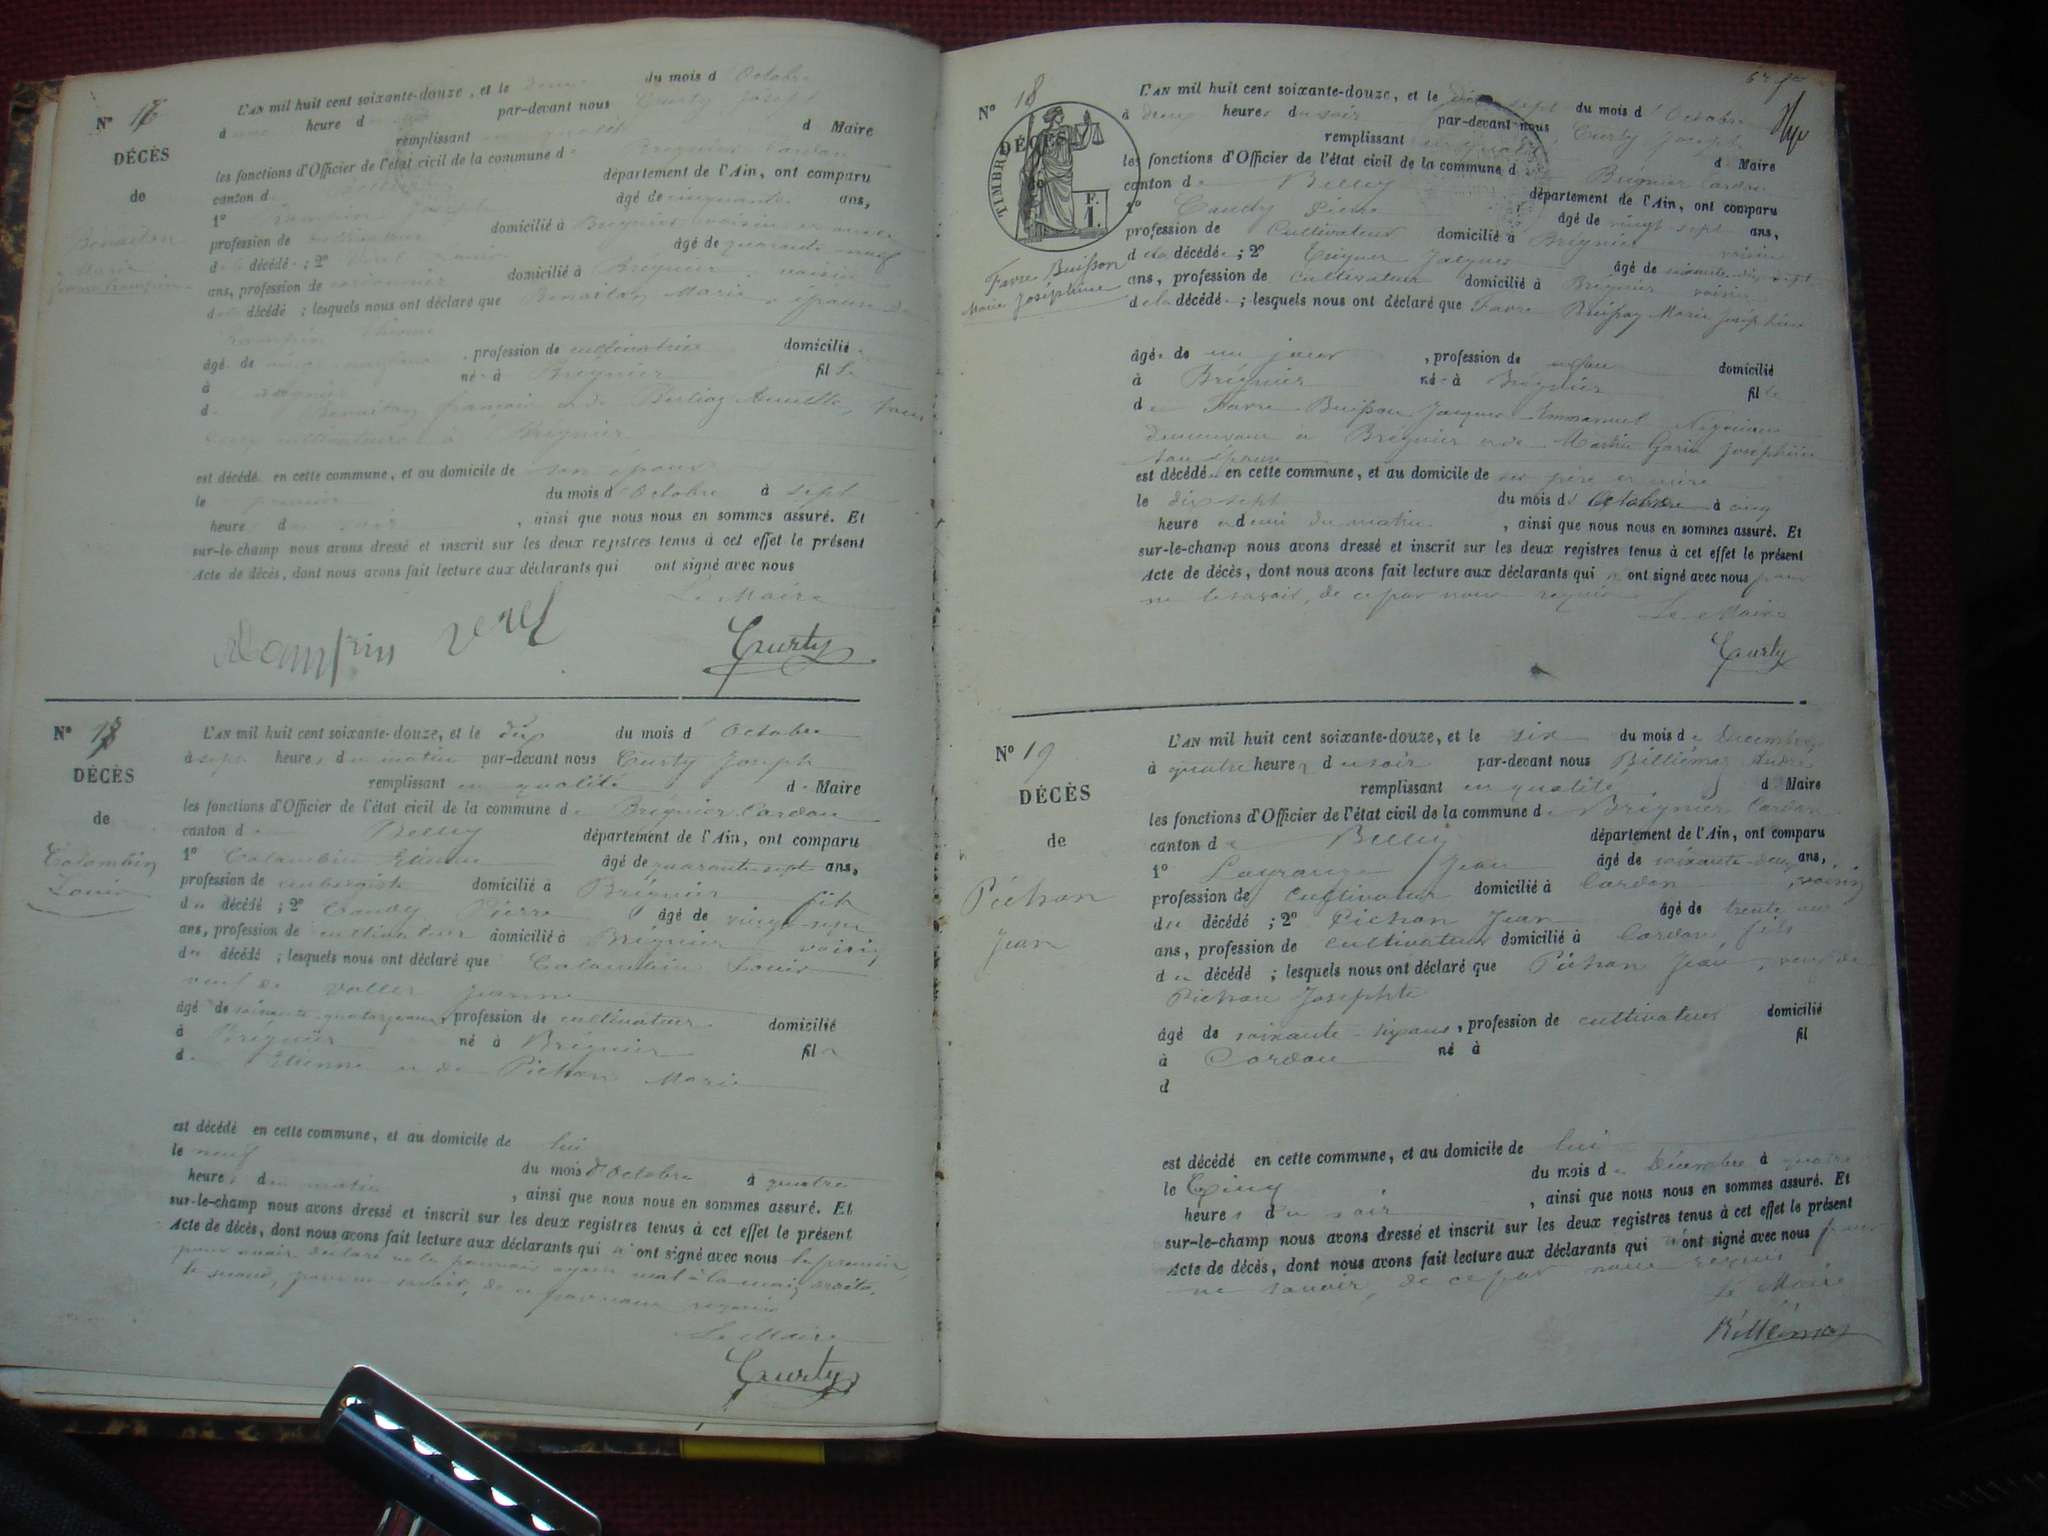 N° 16
DÉCÈS
de
Benaiton
Marie
L'AN mil huit cent soixante-douze, et le deux du mois d'Octobre
à heure d par-devant nous Curty Joseph
remplissant en qualité d Maire
les fonctions d'Officier de l'état civil de la commune de Brégnier Cordon
canton de Belley département de l'Ain, ont comparu
1° Joseph âgé de cinquante ans,
profession de cultivateur domicilié à Brégnier, voisin
d la décédée ; 2° Veret âgé de quarante neuf
ans, profession de domicilié à Brégnier, voisin
d la décédée ; lesquels nous ont déclaré que Benaiton Marie, épouse de
âgé de , profession de cultivatrice domicilié
à Brégnier né à Brégnier fille
de Benaiton françois et de Berlioz
cultivateurs à Brégnier
est décédé en cette commune, et au domicile de son époux
le premier du mois d'Octobre à sept
heures du soir , ainsi que nous nous en sommes assuré. Et
sur-le-champ nous avons dressé et inscrit sur les deux registres tenus à cet effet le présent
Acte de décès, dont nous avons fait lecture aux déclarants qui ont signé avec nous
Le Maire
Curty
N° 17
DÉCÈS
de
Colombin
Louis
L'AN mil huit cent soixante-douze, et le dix du mois d'Octobre
à sept heures du matin par-devant nous Curty Joseph
remplissant en qualité de Maire
les fonctions d'Officier de l'état civil de la commune de Brégnier Cordon
canton de Belley département de l'Ain, ont comparu
1° Colombin Etienne âgé de quarante sept ans,
profession de aubergiste domicilié à Brégnier fils
du décédé ; 2° Candy Pierre âgé de vingt-sept
ans, profession de cultivateur domicilié à Brégnier voisin
du décédé ; lesquels nous ont déclaré que Colombin Louis
veuf de Vallet Jeanne
âgé de soixante quatorze ans, profession de cultivateur domicilié
à Brégnier né à Brégnier fils
de Etienne et de Pichon Marie
est décédé en cette commune, et au domicile de lui
le neuf du mois d'Octobre à quatre
heures du matin , ainsi que nous nous en sommes assuré. Et
sur-le-champ nous avons dressé et inscrit sur les deux registres tenus à cet effet le présent
Acte de décès, dont nous avons fait lecture aux déclarants qui n'ont signé avec nous le premier
pour avoir déclaré ne le pouvoir ayant mal à la main droite,
le second, pour ne savoir, de ce par nous requis
Le Maire
Curty
N° 18
DÉCÈS
de
TIMBRE
F.
1.
Favre Buisson
Marie Joséphine
L'AN mil huit cent soixante-douze, et le dix sept du mois d'Octobre
à deux heures du soir par-devant nous Curty Joseph
remplissant en qualité d Maire
les fonctions d'Officier de l'état civil de la commune de Brégnier Cordon
canton de Belley département de l'Ain, ont comparu
1° Candy Pierre âgé de vingt-sept ans,
profession de Cultivateur domicilié à Brégnier voisin
de la décédée ; 2° Jacques âgé de soixante dix sept
ans, profession de cultivateur domicilié à Brégnier voisin
de la décédée ; lesquels nous ont déclaré que Favre Buisson Marie Joséphine
âgée de un jour , profession de domicilié
à Brégnier née à Brégnier fille
de Favre Buisson Jacques Emmanuel Négociant
demeurant à Brégnier et de Martin Garin Joséphine
son épouse
est décédée en cette commune, et au domicile de ses père et mère
le dix sept du mois d'Octobre à cinq
heures et demi du matin , ainsi que nous nous en sommes assuré. Et
sur-le-champ nous avons dressé et inscrit sur les deux registres tenus à cet effet le présent
Acte de décès, dont nous avons fait lecture aux déclarants qui n'ont signé avec nous pour
ne le savoir, de ce par nous requis
Le Maire
Curty
N° 19
DÉCÈS
de
Pichon
Jean
L'AN mil huit cent soixante-douze, et le six du mois de Décembre
à quatre heures du soir par-devant nous Billiémaz André
remplissant en qualité d Maire
les fonctions d'Officier de l'état civil de la commune de Brégnier Cordon
canton de Belley département de l'Ain, ont comparu
1° Lagrange Jean âgé de soixante-deux ans,
profession de Cultivateur domicilié à Cordon, voisin
du décédé ; 2° Pichon Jean âgé de trente
ans, profession de cultivateur domicilié à Cordon fils
du décédé ; lesquels nous ont déclaré que Pichon Jean, veuf de
Pichon Josephte
âgé de soixante-dix ans, profession de cultivateur domicilié
à Cordon né à fil
d
est décédé en cette commune, et au domicile de lui
le Cinq du mois de Décembre à quatre
heures du soir , ainsi que nous nous en sommes assuré. Et
sur-le-champ nous avons dressé et inscrit sur les deux registres tenus à cet effet le présent
Acte de décès, dont nous avons fait lecture aux déclarants qui n'ont signé avec nous pour
ne savoir, de ce par nous requis
Le Maire
Billiémaz